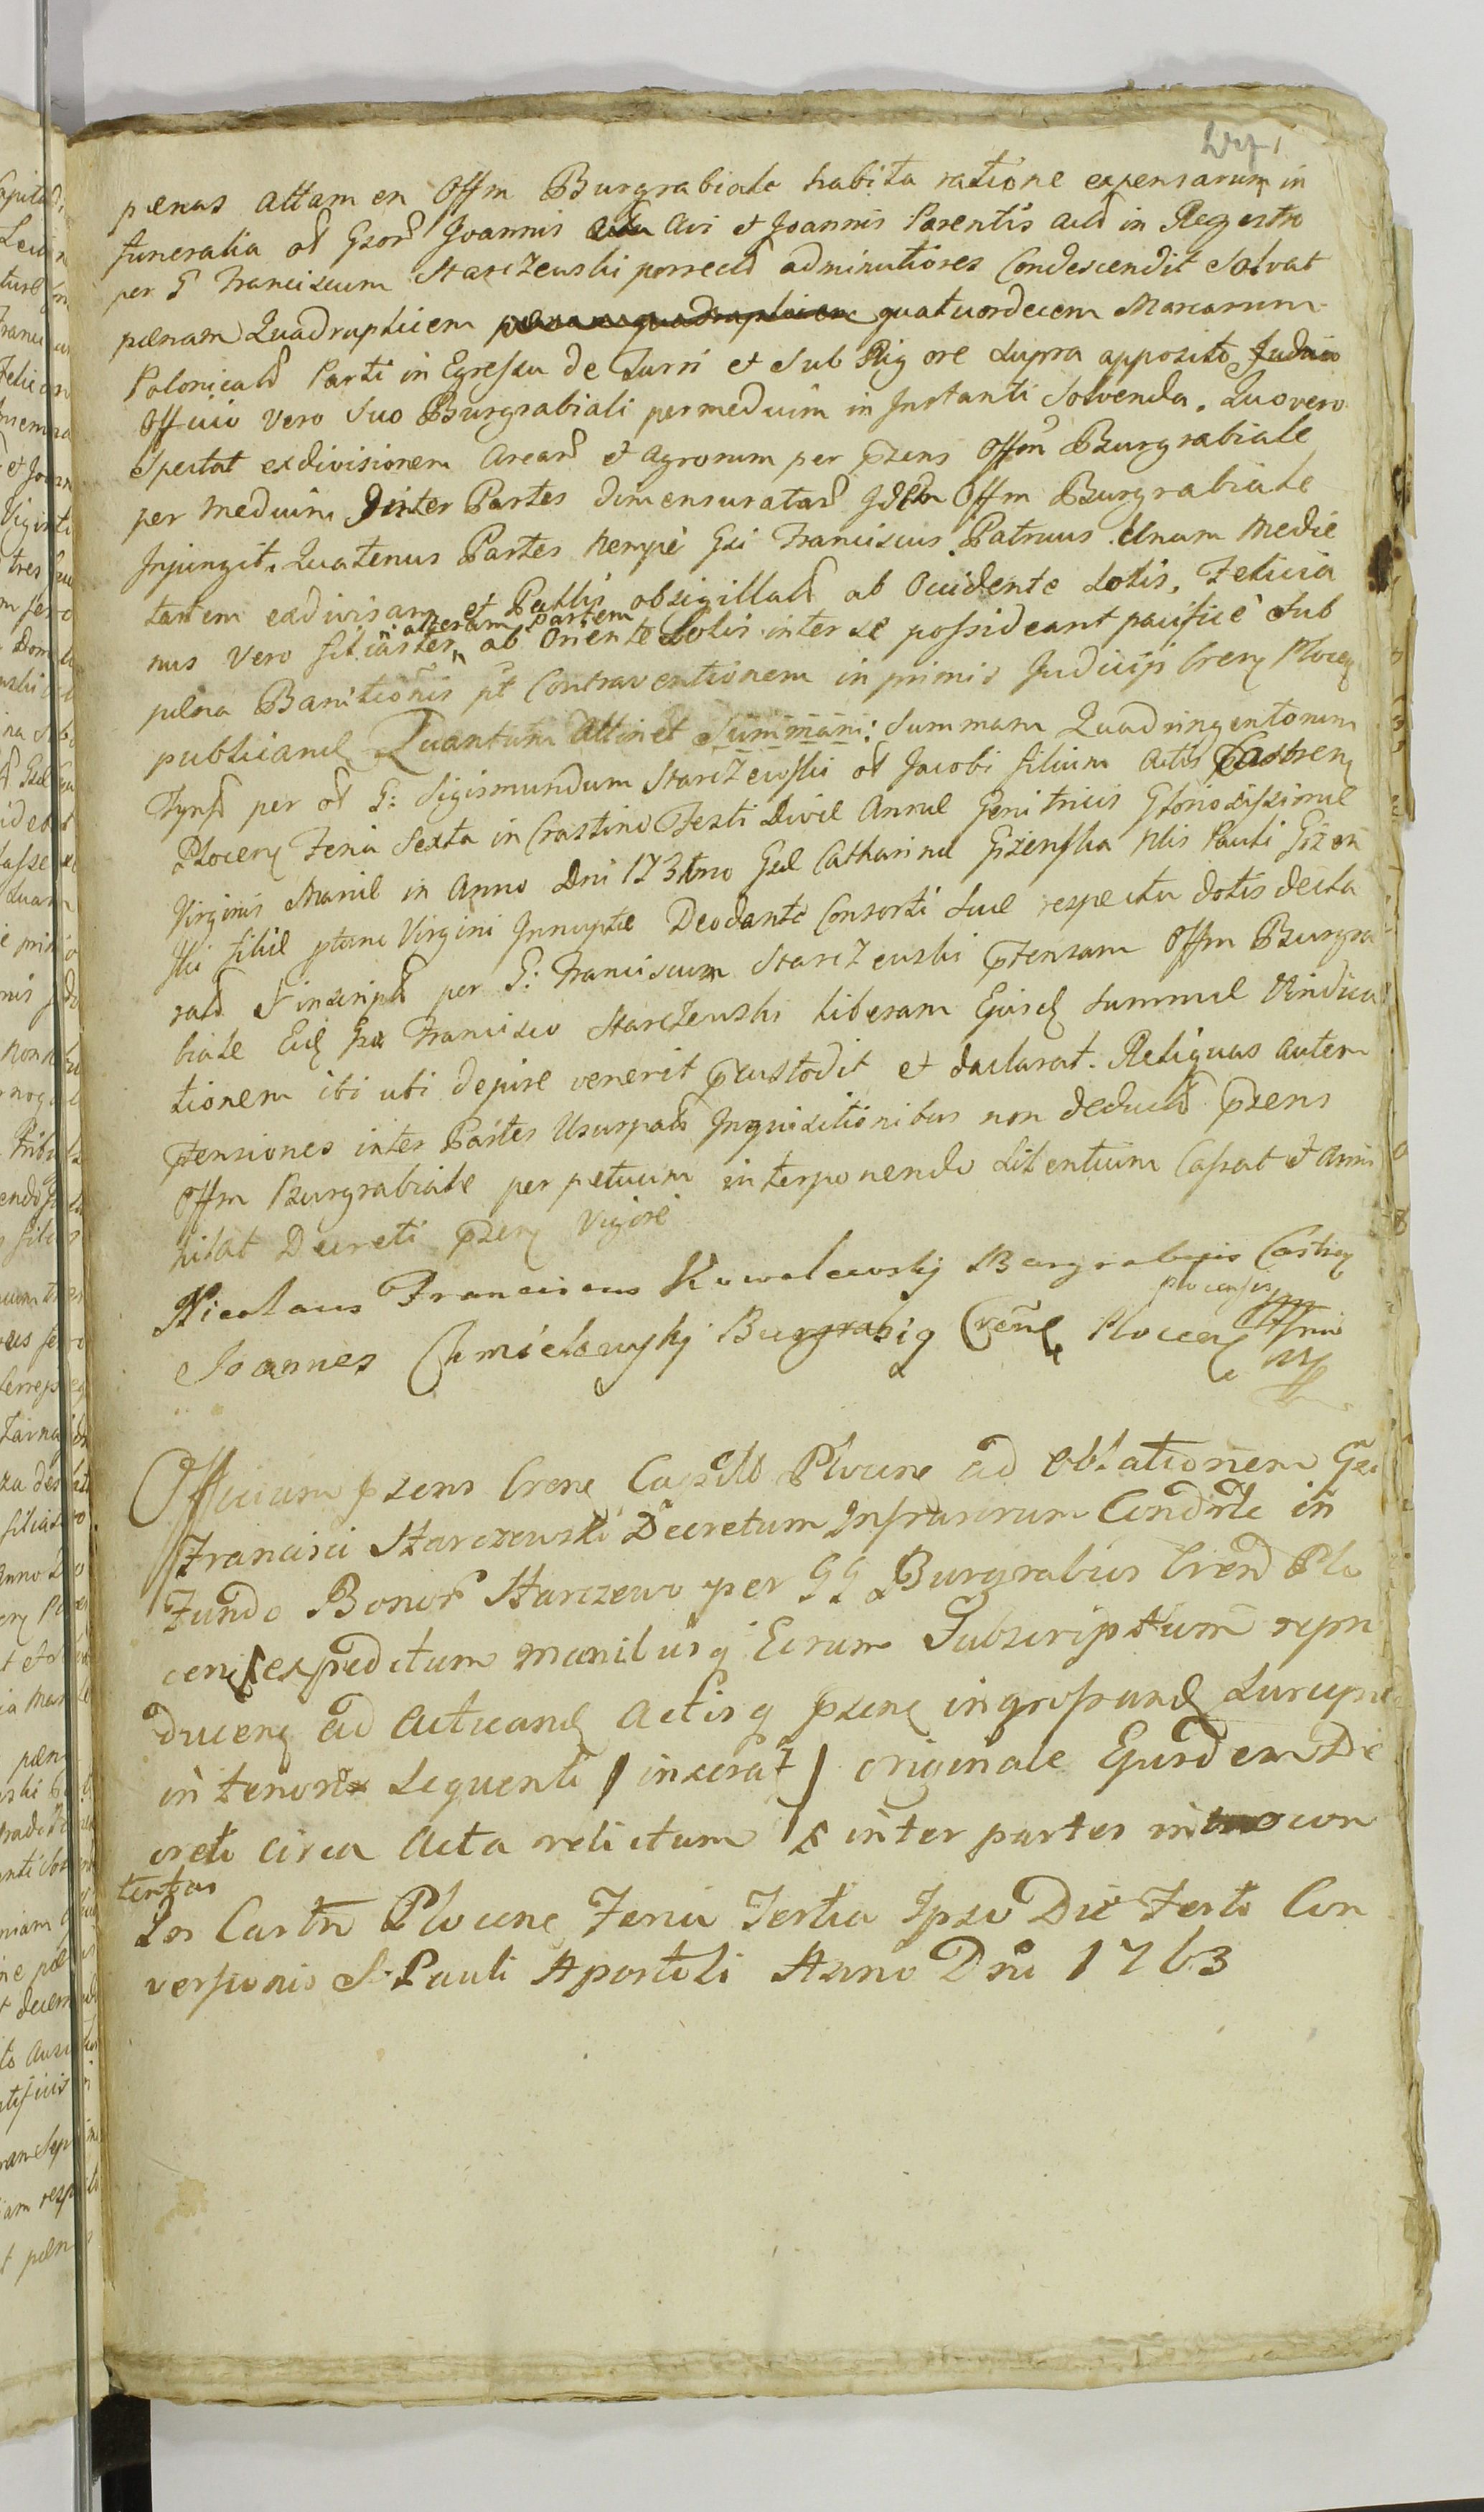 pænas attamen Offm Burgrabiale habita ratione expensarum in
funeralia od Gsor Joannis Avi et Joannis Parentis act in Regestro
per G Franciscum Starczewski porrect adminutiores Condescendit Solvat
pænam Quadruplicem pænam quadruplicem quatuordecem Marcarum
Polonicald Parti in Egressu de Turri et Sub Rigore supra apposito Judicio
Officio vero Suo Burgrabiali permedium in Instanti Solvenda. Quo vero
Spectat exdivisionem Areard et Agrorum per pzens Offm Burgrabiale
per medium Inter Partes dimensuratad Idem Offm Burgrabiale
Injungit. Quatenus Partes nempè Gsi Franciscus Patruus Unam Medie
tatem exdivisam et Pallis obsigillatd ab Occidente Solis, Felicia
nus vero filiaster alteram partem ab Oriente Solis inter se possideant pacificè Sub
pæna Banitionis pt Contraventionem in primis Judicijs Cren Plocen
publicand Quantum Attinet Summam: Summam Quadringentorum
Fynf per od G: Sigismundum Starczewski od Jacobi filium Actis Castren
Plocen Feria Sexta in Crastino Festi Divæ Annæ Genitricis Gloriosissimæ
Virginis Mariæ in Anno Dni 1731mo Gsæ Catharinæ Giżenska Nlis Pauli Giżen
ski filiæ ptunc Virgini Innuptæ Deodante Consorti Suæ respectu dotis decla
ratd et inscriptd per G: Franciscum Starczewski ptensam Offm Burgra
biale Eid Gso Francisco Starczewski liberam Ejusd Summæ Vindica
tionem ibi ubi dejure venerit pcustodit et declarat. Reliquas autem
ptensiones inter Partes Usurpatd Inquisitionibus non deductd pzens
Offm Burgrabiale perpetuum interponendo Silentium Cassat et Anni
hilat Decreti pzen Vigore
Nicolaus Franciscus Kowalewskj Burgrabius Castren
Plocensis
Joannes Chmielewskj Burgrabig Cren Plocen mp
Officium pzens Crene Capitle Plocene ad Oblationem Gsi
Francisci Starczewski Decretum Infrascrum Conditle in
Fundo Bonor Starczewo per GG Burgrabios Crend Plo
cens expeditum manibusq Eorum Subscriptum repro
ducen ad Acticand Actisq pzen ingrossand suscepit
in tenore sequenti / inserat / originale Ejusdem De
creti circa Acta relictum et inter partes in con
tentas
In Castro Plocene Feria Tertia Ipso Die Festi Con
versionis S. Pauli Apostoli Anno Dni 1763